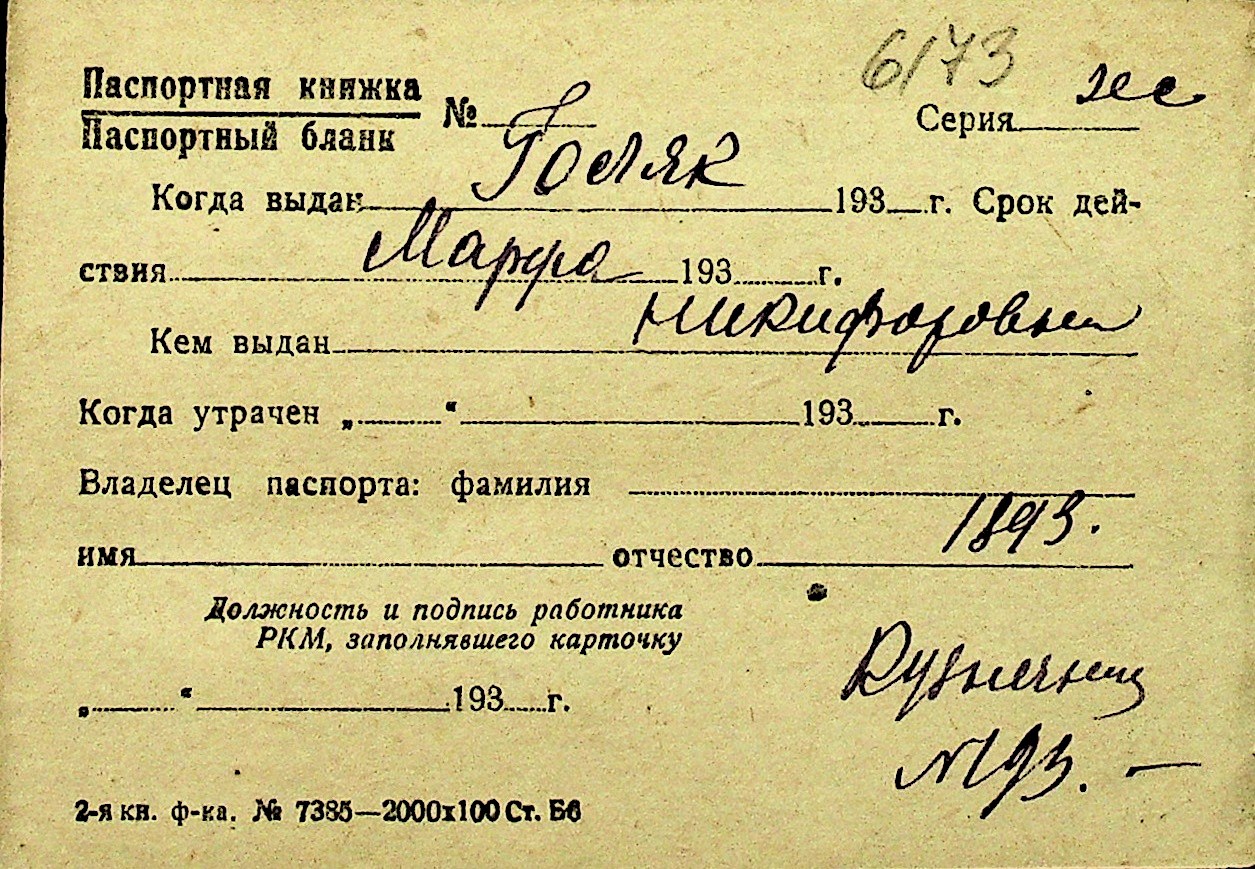 6173
Паспортная книжка
Паспортный бланк
№ Серия
Гопяк
Когда выдан 193 г. Срок дей-
Марфа
ствия 193 г.
Никифоровна
Кем выдан
Когда утрачен „ “ 193 г.
Владелец паспорта: фамилия
1893.
имя отчество
Должность и подпись работника
РКМ, заполнявшего карточку
Кузнечная
„ “ 193 г.
№ 93. —
2-я кн. ф-ка. № 7385—2000х100 Ст. Бб